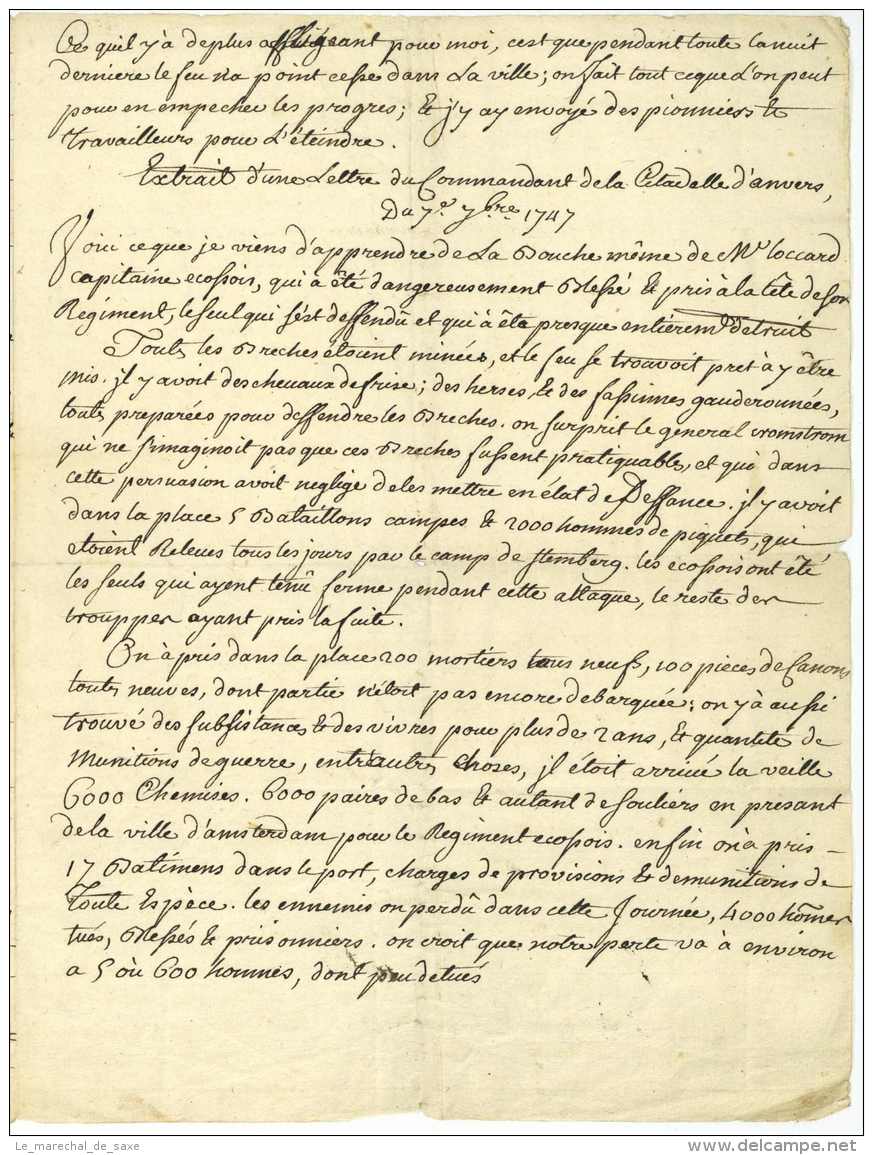 Ce quil y'à de plus affligeant pour moi, c'est que pendant toute la nuit
derniere le feu n'a point cessé dans La ville; on fait tout ce que L'on peut
pour en empecher les progres; & j'y ay envoyé des pionniers &
Travailleurs pour L'éteindre.
Extrait d'une Lettre du Commandant de la Citadelle d'anvers,
Du 7bre 1747
Voici ce que je viens d'apprendre de La Bouche même de Mr. loccard
capitaine ecossois, qui à êté dangereusement Blessé & pris à la tête de son
Regiment, le seul qui s'est deffendû et qui à êtê presque entièremt. detruit
Toutes les Breches étoient minées, et le feu se trouvoit pret à y être
mis. jl y avoit des chevaux de frise; des herses, & des fassinnes gauderonnées,
toutes preparées pour deffendre les Breches. on surprit le general cromstrom
qui ne s'imaginoit pas que ces Breches fussent pratiquables, et qui dans
cette persuasion avoit negligé de les mettre en état de Deffance. jl y avoit
dans la place 5 Bataillons campés & 2000 hommes de piquets, qui
etoient Releves tous les jours par le camp de stemberg. les ecossois ont êtê
les seuls qui ayent tenû ferme pendant cette attaque, le reste des
trouppes ayant pris la fuite.
On à pris dans la place 200 mortiers tous neufs, 100 pieces de Canons
toutes neuves, dont partie n'étoit pas encore debarquée; on y à aussi
trouvé des subsistances & des vivres pour plus de 2 ans, & quantité de
Munitions de guerre, entr'autres choses, jl étoit arrivé la veille
6000 Chemises. 6000 paires de bas & autant de souliers en present
de la ville d'amsterdam pour le Regiment ecossois. enfin on à pris
17 Batimens dans le port, charges de provisions & de munitions de
Toute Espèce. les ennemis on perdû dans cette Journée, 4000 hômes
tués, Blessés & prisonniers. on croit que notre perte va à environ
a 5 où 600 hommes, dont peu de tués
Le_marechal_de_saxe
delcampe.net